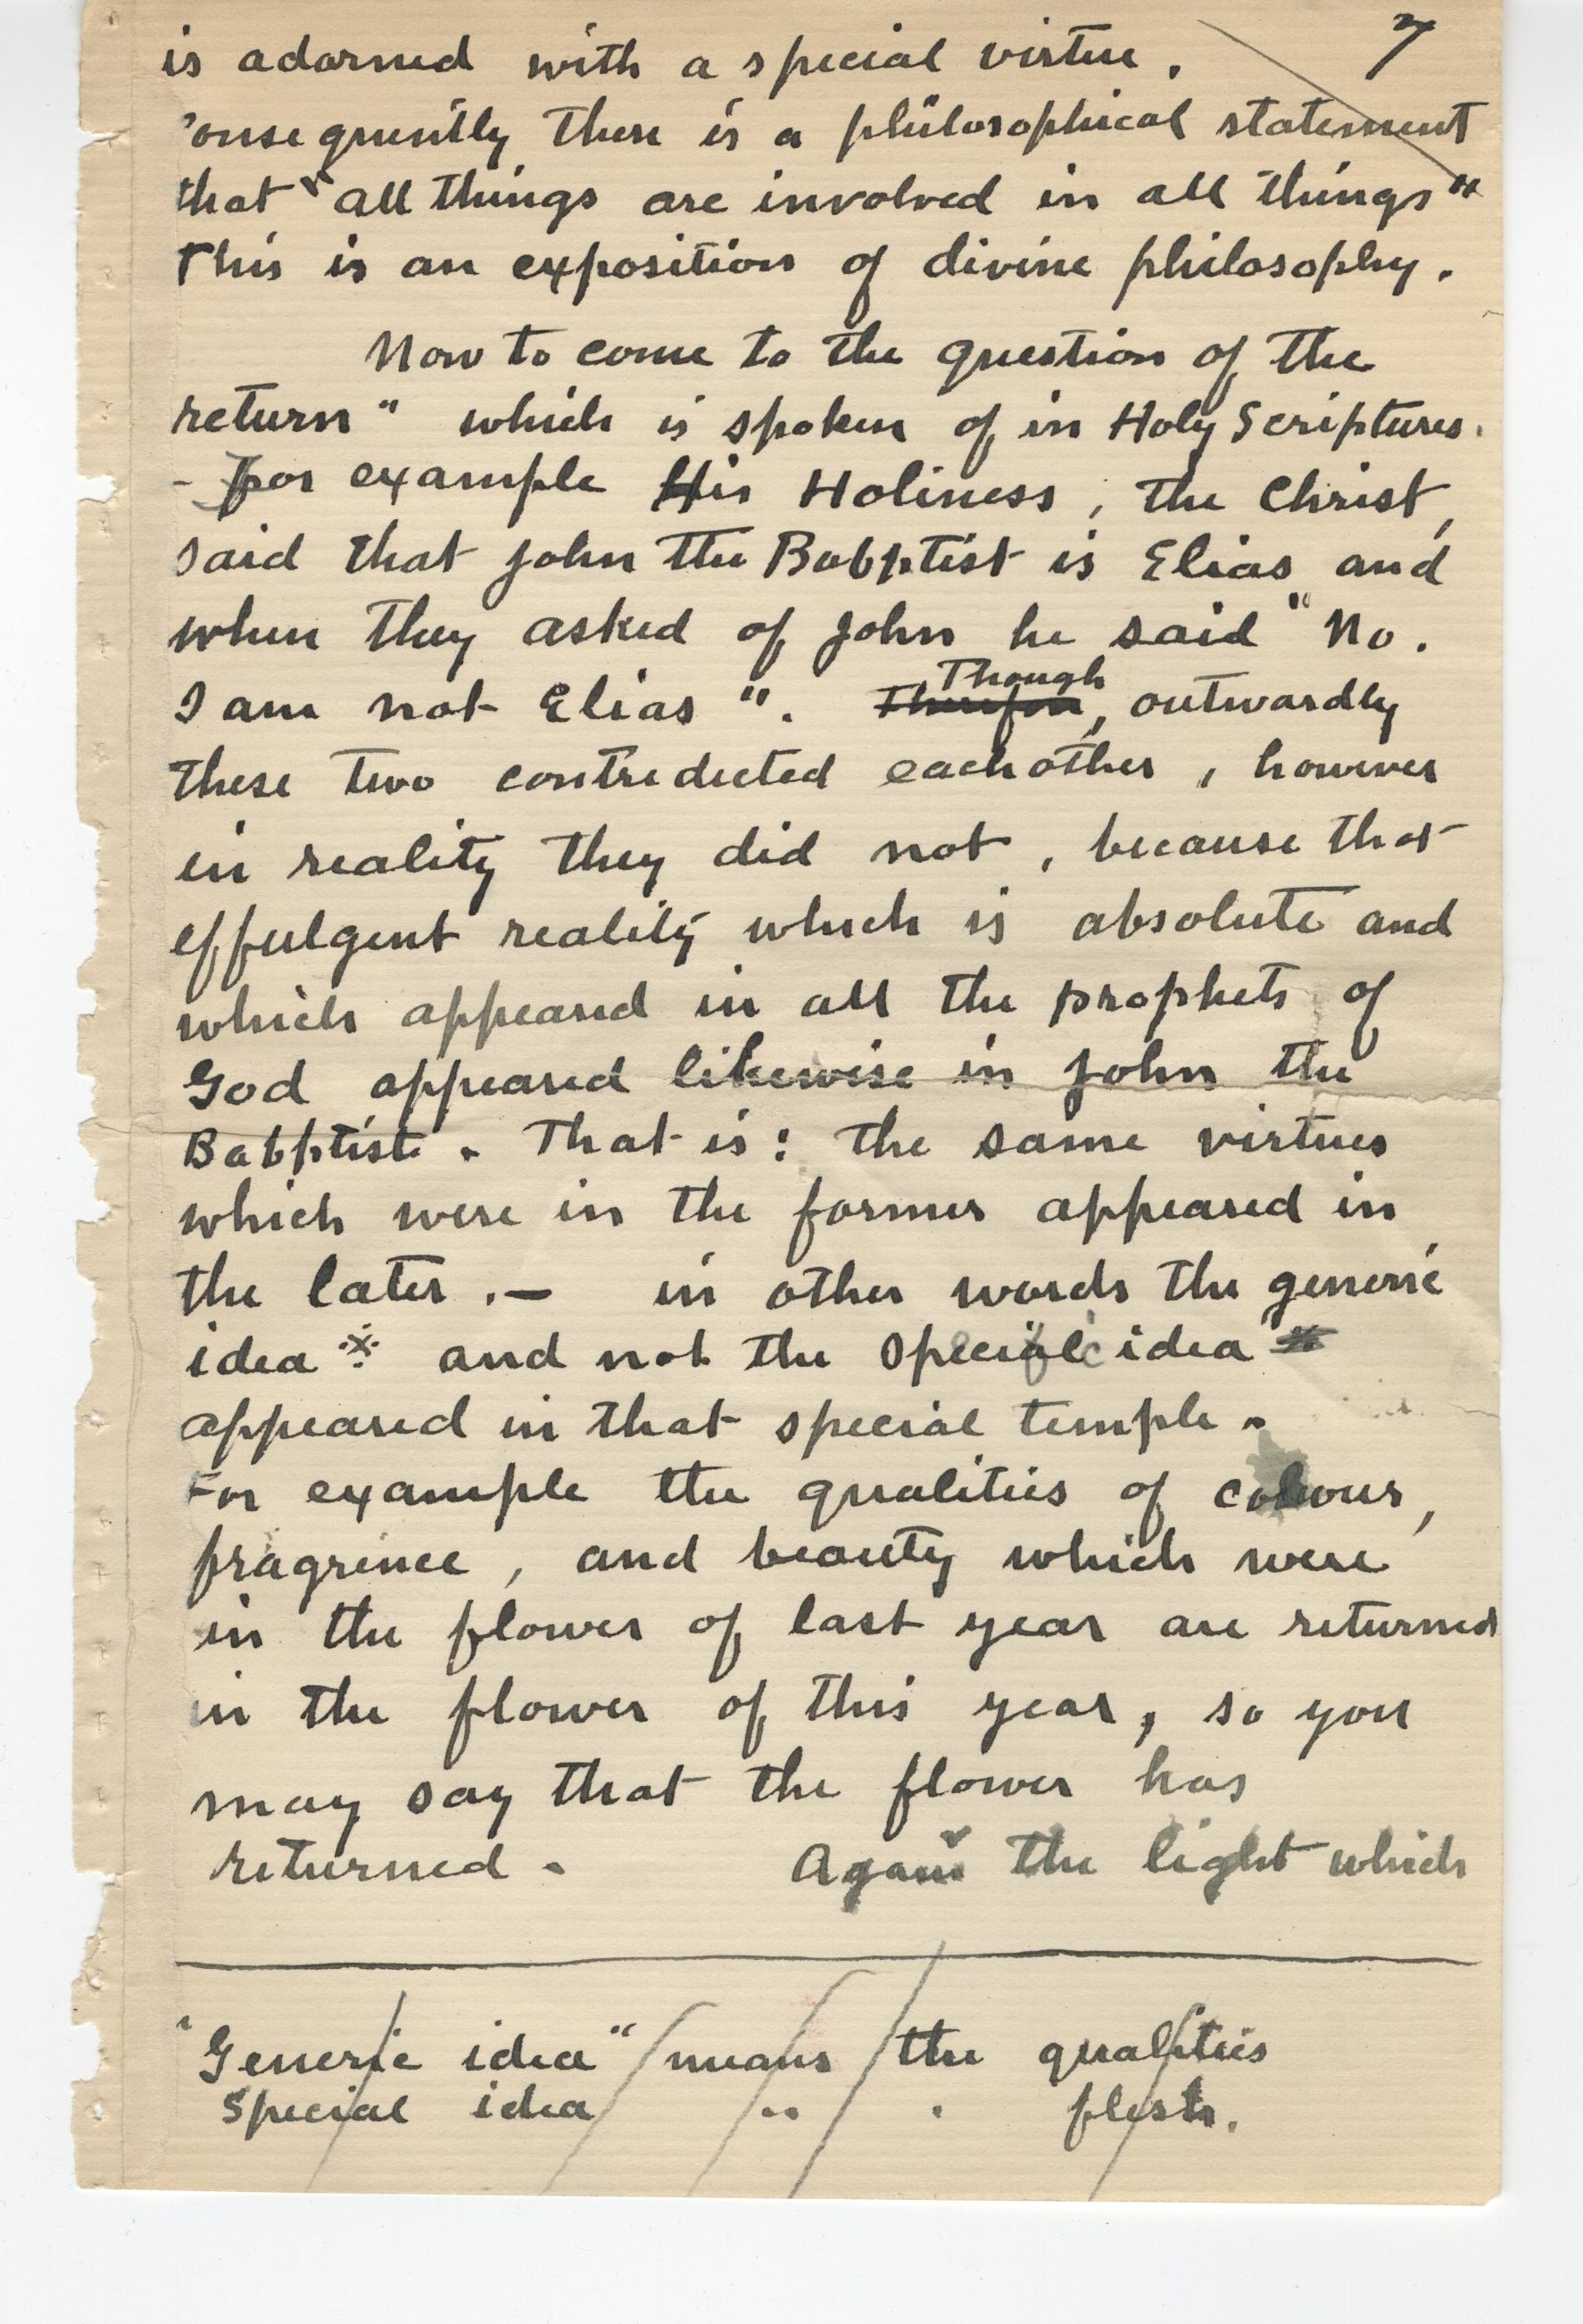 7
is adorned with a special virtue.
'onsequently there is a philosophical statement
that "all things are involved in all things"
This is an exposition of divine philosophy.
Now to come to the question of the
return" which is spoken of in Holy Scriptures.
- For example His Holiness, the Christ,
said that John the Babptist is Elias and
when they asked of John he said "No.
I am not Elias". Therefore Though, outwardly
these two contredicted eachother, however
in reality they did not, because that
effulgent reality which is absolute and
which appeared in all the prophets of
God appeared likewise in John the
Babptist. That is: the same virtues
which were in the former appeared in
the later.— in other words the generic
idea ※ and not the specific idea
appeared in that special temple.
For example the qualities of colour,
fragrence, and beauty which were
in the flower of last year are returned
in the flower of this year, so you
may say that the flower has
returned. Again the light which
"Generic idea" means the qualities
Special idea " " flesh.